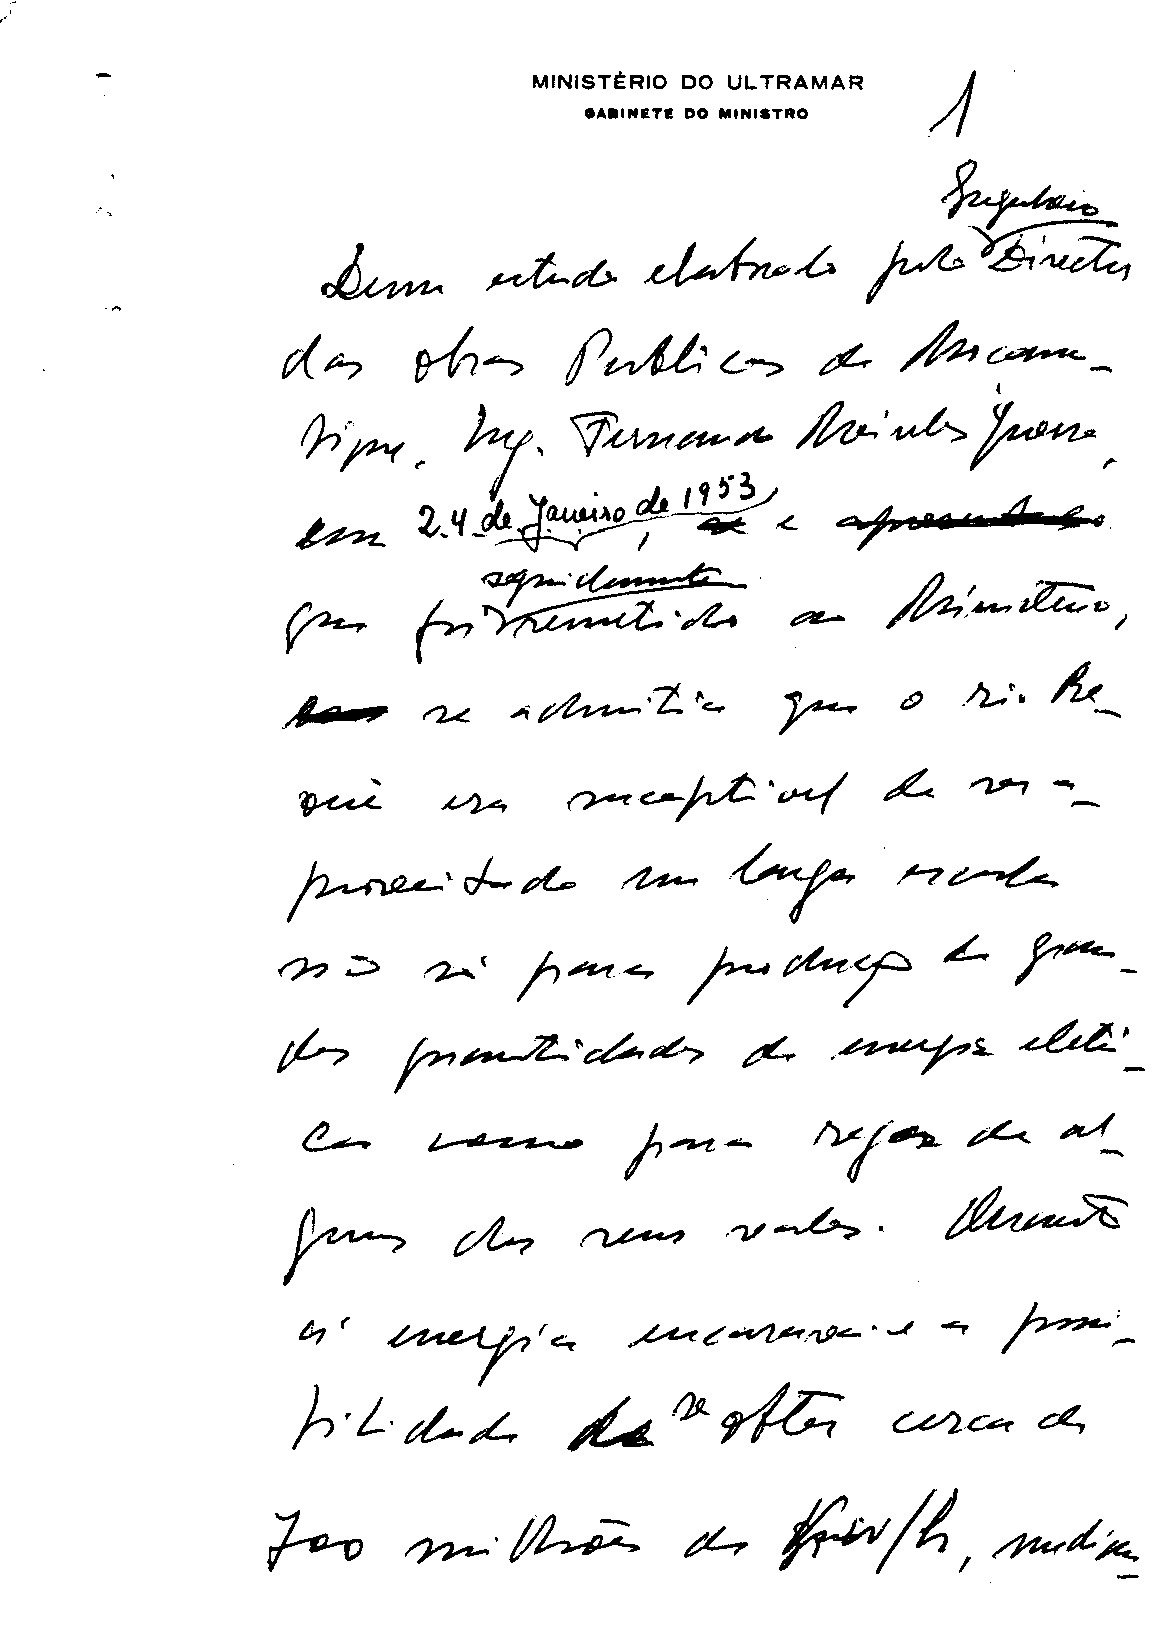 MINISTÉRIO DO ULTRAMAR
GABINETE DO MINISTRO
1
Dum estudo elaborado pelo Director
das Obras Publicas de Moçam-
bique, Eng.
em 24 de Janeiro de 1953, e
seguidamente
que foi remetido ao Ministério,
se admitia que o rio Re-
vuè era susceptivel de ser a-
proveitado em larga escala
não só para produção de gran-
des quantidades de energia eletri-
ca como para rega de al-
guns dos seus vales. Quanto
à energia encarava-se a possi-
bilidade de se obter cerca de
700 milhões de Kw/h, median-